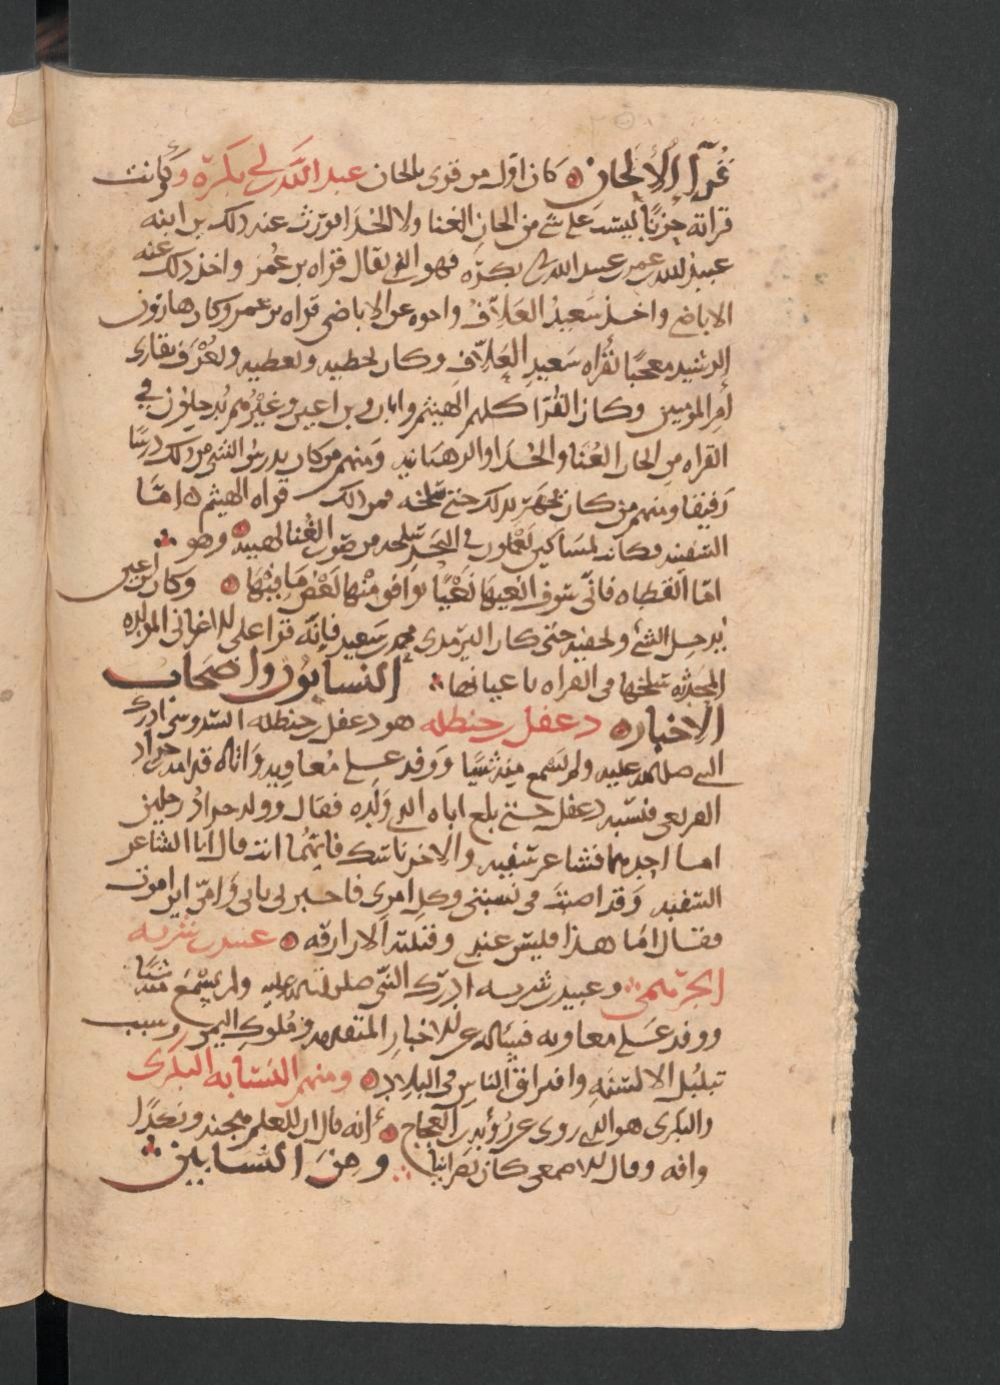 قرآ الألحان ۞ كان اول من قرى بالحان عبد الله بن ابى بكرة وكانت
قراته حزنًا ليست على شى من الحان الغنا ولا الحدا فورث عنه ذلك بن ابنه
عبيد الله بن عمر بن عبيد الله بن ابى بكرة فهو الذى يقال قراه بن عُمر واخذ ذلك عنه
الاباضى واخذ سَعيدُ العَلاّف واخوه عن الاباضى قراه بن عمر وكان هارُون
الرشيد معجبًا بقراه سَعيد العَلاّف وكان يحظيه ويعطيه ويُعْرَف بقارى
امير المؤمنين وكان القُرّا كلهم الهيثم وابان وبن اعين وغيرُهم يُدخِلون فى
القراه من الحان الغُنا والحُدا والرهبانيه ومنهم من كان يدسُّ الشى من ذلك دسًّا
رَفيقًا ومنهم من كان يجهَر بذلك حتى سلخه فمن ذلك قراه الهيثم ۞ امّا
السفينه فكانت لمسَاكين يَعْملون فى البَحْر سلخه من صَوت الغُنا كهيئه ۞ وهو
امّا القَطاه فانّى سَوفَ انعتها نَعْتًا يُوافق مِنْها بَعْض مَا فيْهَا ۞ وكان بن اعين
يُدخِل الشئ ويخفيه حتى كان الترمذى محمد بن سَعيد فانّه قرا على الاغانى المولده
المُحْدَثه سلخها فى القراه باعيانها ؞ النسابُون واصحَاب
الاخبار ۞ دغفل بن حنظله هو دغفل بن حنظله السّدوسى ادرك
النبى صلى الله عليه ولم يَسْمع منه شيًا ووَفد على مُعاويه وَاتاه قدامه بن جراد
القريعى فنسَبه دغفل حتى بلغ اباه الذى وَلَدَه فقال وولد جرادُ رجلين
اما احدهما فشاعر سَفيه والاخر ناسك فايّهُما انت قال انا الشاعر
السّفيه وَقد اصبْتَ فى نسبتى وكل امرى فاخبرنى بابى وَامّى اين اموت
فقال امّا هذا فليسَ عندى وقتلته الازارقه ۞ عبيد بن شريه
الجُرهمى ؞ وعبيد بن شريه ادرك النّبى صلى الله عليه ولم يَسْمَعْ منه شيًّا
ووفد عَلى معاويه فسَاله عن الاخبار المتقدمه وَمُلوك اليمن وسبب
تبلبُل الالسنَهِ وافتراق الناس فى البلاد ۞ ومنهم النسّابه البكرى
والبكرى هو الذى روى عن رُؤبه بن العجاج ۞ انه قال ان للعلم هجنه ونكدًا
وافه وقال الاصمعى كان نَصرانيًا ؞ ومن النسّابين ؞